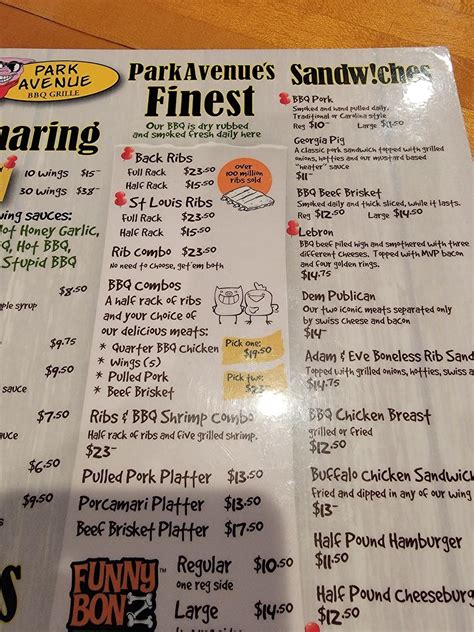 PARK
AVENUE
BBQ GRILLE
haring
10 WINGS $15
30 WINGS $38
ing sauces:
Hot Honey Garlic,
Hot BBQ,
Stupid BBQ
$8.50
ple syrup
$9.75
$9.50
sauce
$7.50
auce
$6.50
$9.50
ParkAvenue's
Finest
Our BBQ is dry rubbed
and smoked fresh daily here
Back Ribs
Full Rack $23.50
Half Rack $15.50
over
100 million
ribs sold
St Louis Ribs
Full Rack $23.50
Half Rack $15.50
Rib Combo $23.50
No need to choose, get'em both
BBQ Combos
A half rack of ribs
and your choice of
our delicious meats:
* Quarter BBQ Chicken
* Wings (5)
* Pulled Pork
* Beef Brisket
Pick one:
$19.50
Pick two:
Ribs & BBQ Shrimp Combo
Half rack of ribs and five grilled shrimp.
$23
Pulled Pork Platter $13.50
Porcamari Platter $13.50
Beef Brisket Platter $17.50
FUNNY
BON
Regular $10.50
one reg side
Large $14.50
Sandw!ches
BBQ Pork
Smoked and hand pulled daily,
Traditional or Carolina style
Reg $10 Large
Georgia Pig
A classic pork sandwich topped with grilled
onions, hotties and our mustard based
"heater" sauce
$11
BBQ Beef Brisket
Smoked daily and thick sliced, while it lasts.
Reg $12.50 Large $14.50
Lebron
BBQ beef piled high and smothered with three
different cheeses. Topped with MVP bacon
and four golden rings.
$14.75
Dem Publican
Our two iconic meats separated only
by swiss cheese and bacon
$14
Adam & Eve Boneless Rib Sand
Topped with grilled onions, hotties, swiss a
$14.75
BBQ Chicken Breast
grilled or fried
$12.50
Buffalo Chicken Sandwich
Fried and dipped in any of our wing
$13
Half Pound Hamburger
$11.50
Half Pound Cheeseburg
$12.50